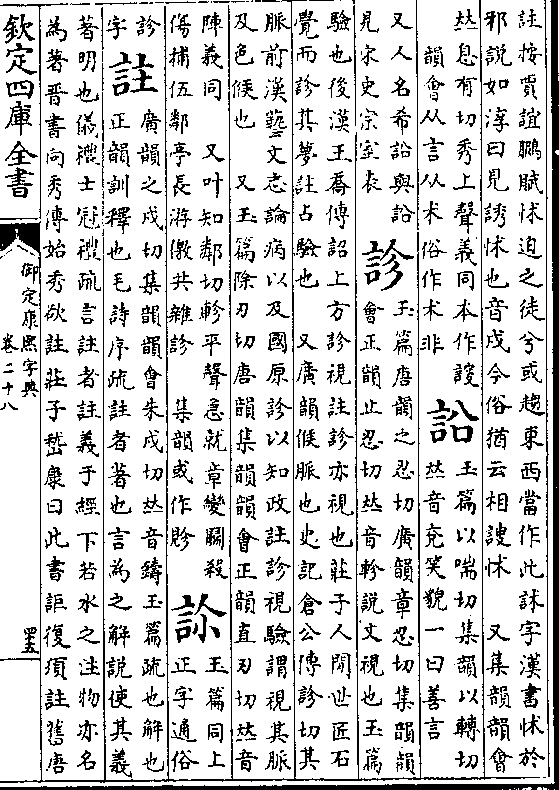 註按賈誼鵬賦怵迫之徒兮或趨東西當作此訹字漢書怵於
邪說如淳曰見誘怵也音戌今俗猶云相謏怵　又集韻韻會
𠀤息有切秀上聲義同本作
韻會从言从术俗作朮非
玉篇以喘切集韻以轉切
𠀤音兗笑貌一曰善言
又人名希與
見宋史宗室表
診
玉篇唐韻之忍切廣韻章忍切集韻韻
會正韻止忍切𠀤音軫說文視也玉篇
驗也後漢王喬傳詔上方診視註診亦視也莊子人間世匠石
覺而診其夢註占驗也　又廣韻候脈也史記倉公傳診切其
脈前漢藝文志論病以及國原診以知政註診視驗謂視其脈
及色候也　又玉篇除刃切唐韻集韻韻會正韻直刃切𠀤音
陳義同　又叶知鄰切軫平聲急就章變鬭殺
傷捕伍鄰亭長游徼共雜診　集韻或作眕
玉篇同上
正字通俗
診
字
註
廣韻之戍切集韻韻會朱戍切𠀤音鑄玉篇疏也解也
正韻訓釋也毛詩序疏註者著也言為之解說使其義
著明也儀禮士冠禮疏言註者註義于經下若水之注物亦名
為著晉書向秀傳始秀欲註莊子嵇康曰此書詎復須註舊唐
欽定四庫全書
御定康熙字典
卷二十八